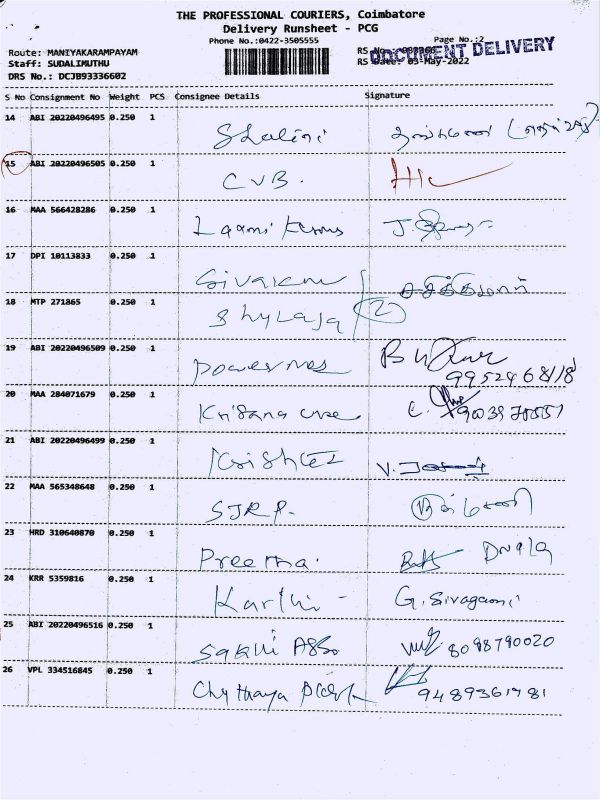 THE PROFESSIONAL COURIERS, Coimbatore
Delivery Runsheet - PCG
Phone No.:0422-3505555
Page No.:2
Route: MANIYAKARAMPAYAM
RS No.:
DOCUMENT DELIVERY
Staff: SUDALIMUTHU
RS Date: 03-May-2022
DRS No.: DCJB93336602
S No Consignment No Weight PCS Consignee Details Signature
14 ABI 20220496495 0.250 1 Shalini
15 ABI 20220496505 0.250 1 CVB.
16 MAA 566428286 0.250 1 Laxmi
17 DPI 10113833 0.250 1
18 MTP 271865 0.250 1 Shylaja 2
19 ABI 20220496509 0.250 1
9952468118
20 MAA 284071679 0.250 1 Krisana
21 ABI 20220496499 0.250 1
22 MAA 565348648 0.250 1 SJRP.
23 HRD 310640870 0.250 1 Preetha.
24 KRR 5359816 0.250 1 Karthi - G. Sivagami
25 ABI 20220496516 0.250 1 Sakthi Asso 8098790020
26 VPL 334516845 0.250 1 9489361781